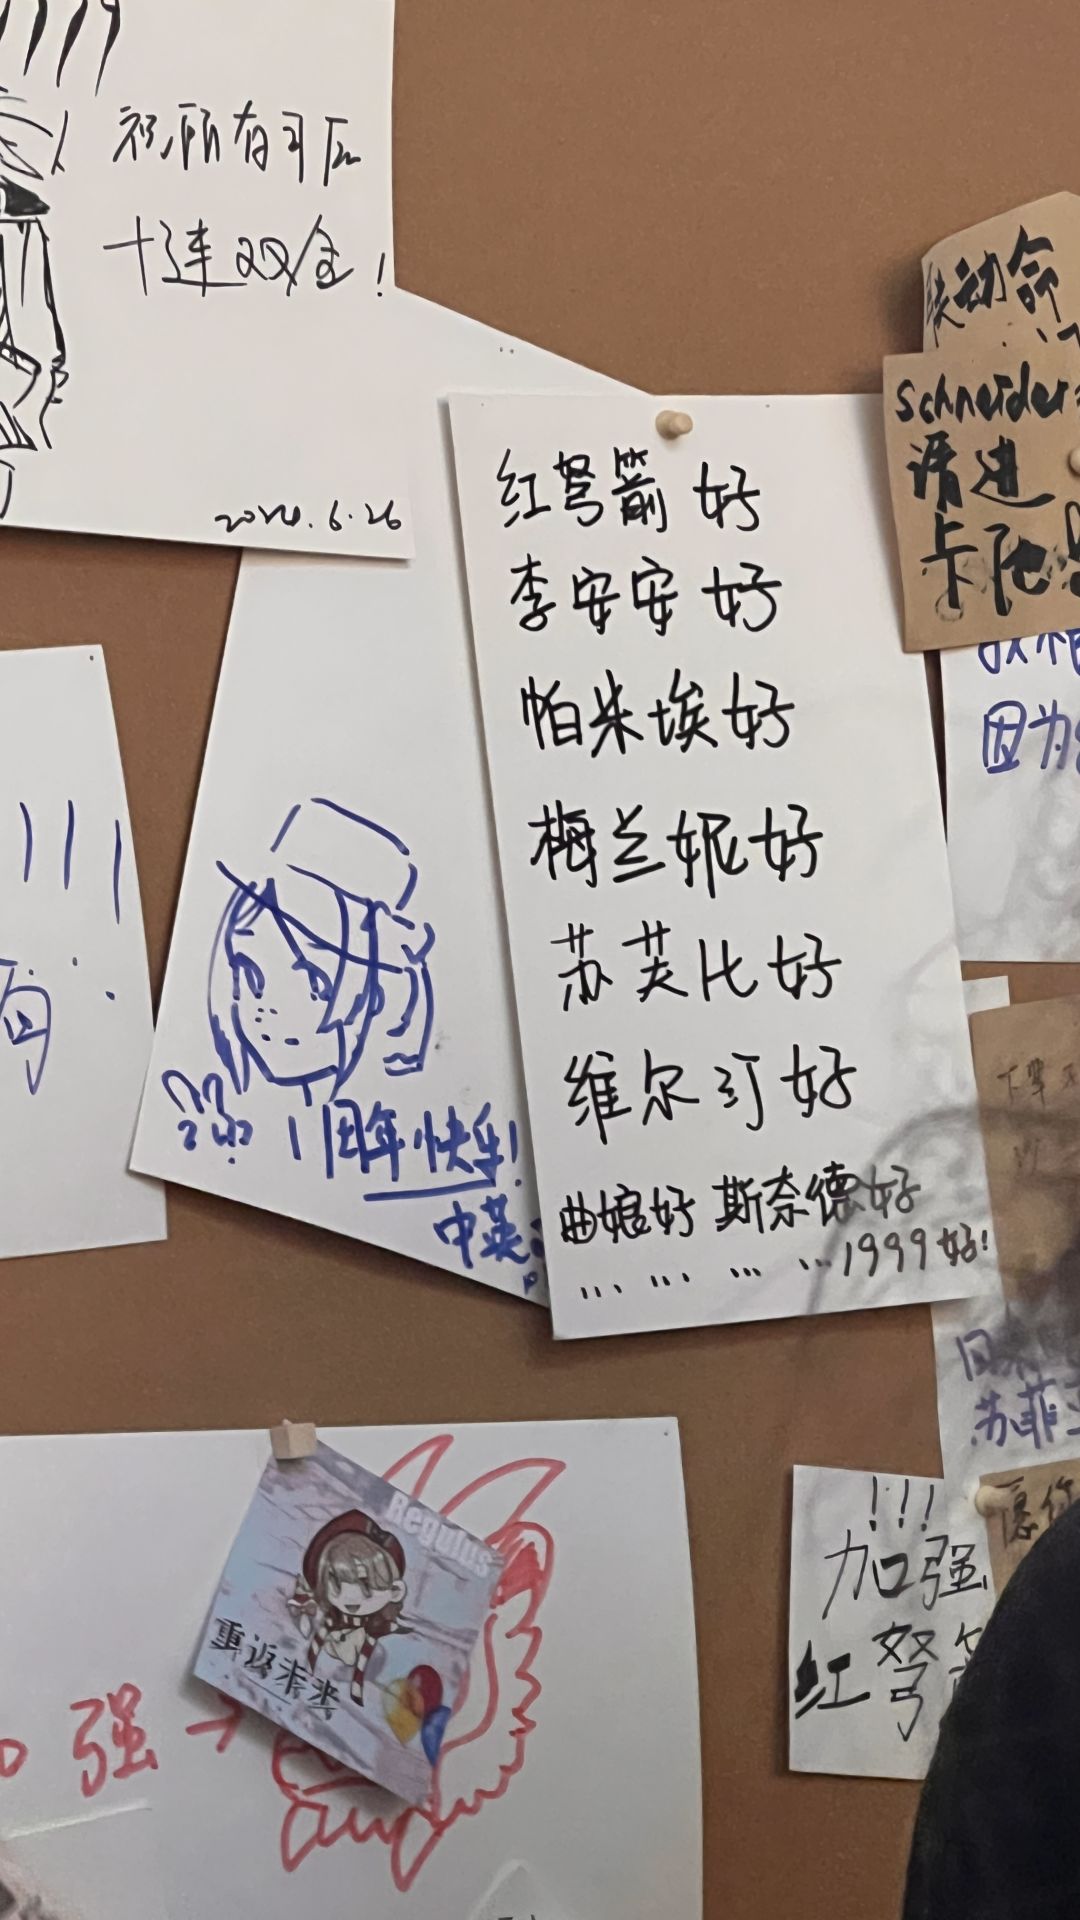 祝所有司辰
十连双金！
2024.6.26
联动命
Schneider
请进
卡池
因为
红弩箭 好
李安安 好
帕米埃好
梅兰妮好
苏芙比好
维尔汀好
曲娘好 斯奈德好
… … … …1999好！
1周年快乐！
中英
Regulus
重返未来
强→
苏菲
!!!
加强
红弩箭
愿你